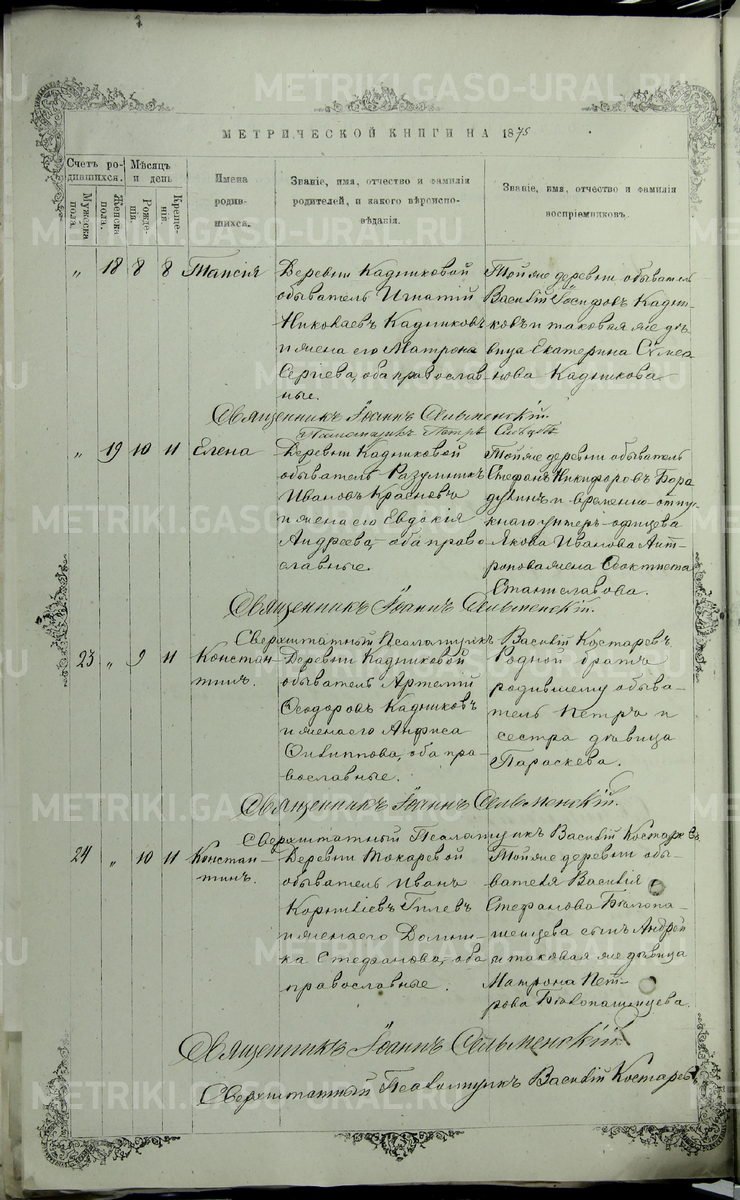 МЕТРИЧЕСКОЙ КНИГИ НА 1875
Счетъ родившихся.
Мужеска пола.
Женска пола.
Мѣсяцъ и день
Рожденія.
Крещенія.
Имена родившихся.
Званіе, имя, отчество и фамилія родителей, и какого вѣроисповѣданія.
Званіе, имя, отчество и фамилія воспріемниковъ.
„ 18 8 8 Таисія
Деревни Кадниковой
обыватель Игнатій
Николаевъ Кадниковъ
и жена его Матрона
Сергіева, оба православ-
ные.
Той же деревни обыватель
Василій Іосифовъ Кадни-
ковъ и таковая же дѣ-
вица Екатерина
Кадникова
Священникъ Іоаннъ Сельменскій.
Псаломщикъ Петръ
„ 19 10 11 Елена
Деревни Кадниковой
обыватель Разумникъ
Ивановъ
и жена его Евдокія
Андреева, оба право-
славные.
Той же деревни обыватель
Стефанъ Никифоровъ Бора
дулинъ и временно-отпу-
кнаго унтеръ-офицера
Якова Иванова Ант-
ропова жена Ѳеоктиста
Станиславова.
Священникъ Іоаннъ Сельменскій.
Сверхштатный Псаломщикъ Василій Костаревъ
23 „ 9 11 Констан-
тинъ.
Деревни Кадниковой
обыватель Артемій
Ѳеодоровъ Кадниковъ
и жена его Анфиса
Филиппова, оба пра-
вославные.
Родной братъ
родившему обыва-
тель Петръ и
сестра дѣвица
Параскева.
Священникъ Іоаннъ Сельменскій.
Сверхштатный Псаломщикъ Василій Костаревъ
24 „ 10 11 Констан-
тинъ.
Деревни Токаревой
обыватель Иванъ
Корниліевъ Гилевъ
и жена его Домни-
ка Стефанова, оба
православные.
Той же деревни обы-
вателя Василія
Стефанова Бѣлопа-
шенцева сынъ Андрей
и таковая же дѣвица
Матрона Пет-
рова Бѣлопашенцева.
Священникъ Іоаннъ Сельменскій.
Сверхштатный Псаломщикъ Василій Костаревъ
METRIKI.GASO-URAL.RU